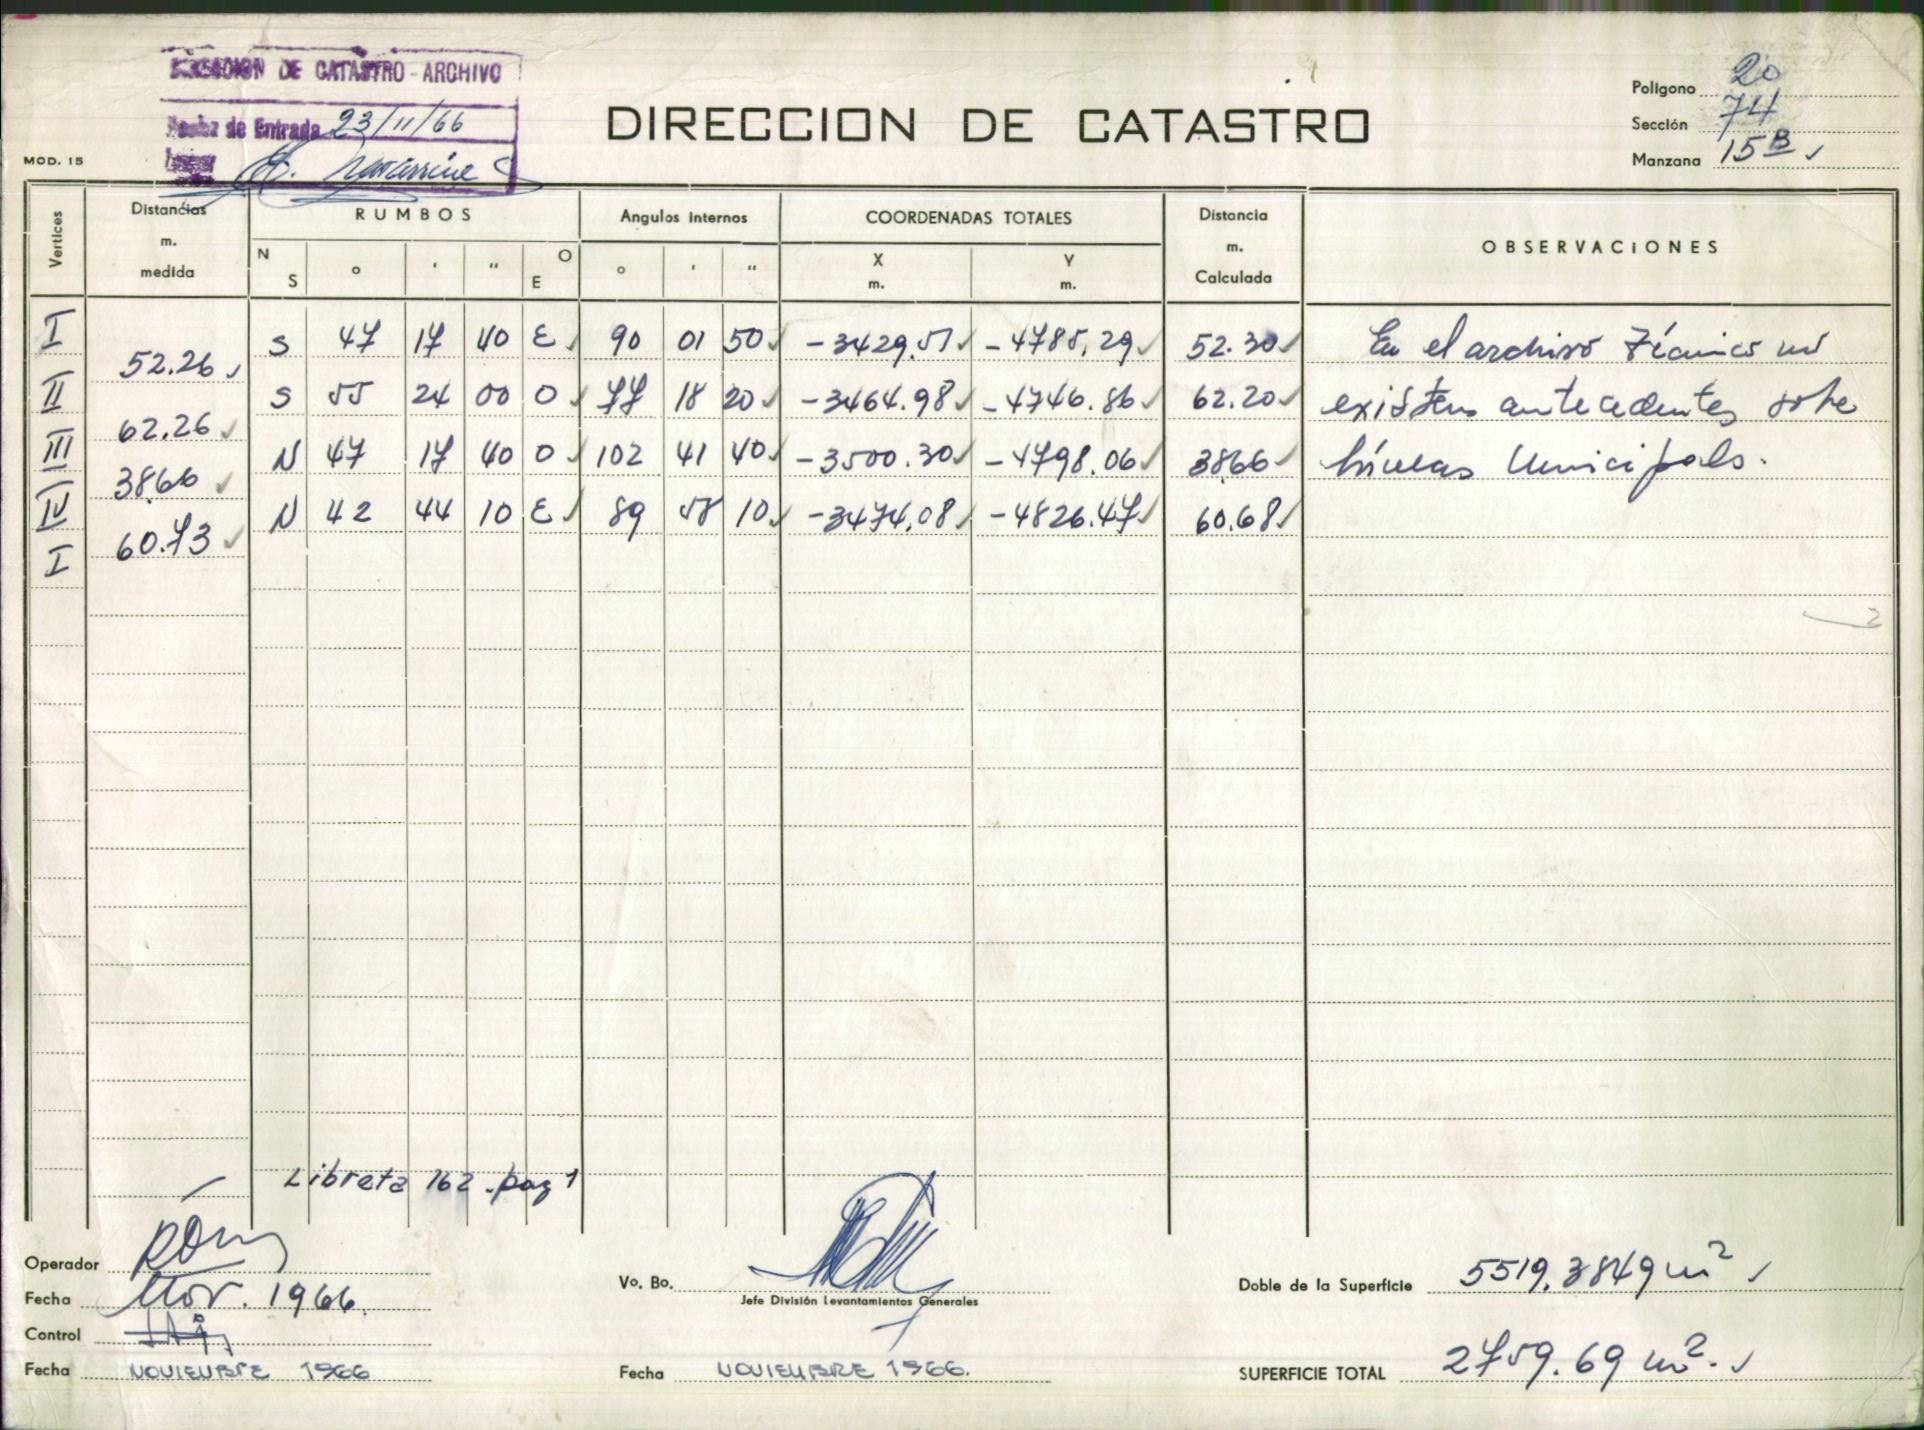 DIRECCION DE CATASTRO - ARCHIVO
Fecha de Entrada 23/11/66
MOD. 15
DIRECCION DE CATASTRO
Polígono 20
Sección 74
Manzana 15B ✓
Vertices
Distancias m. medida
RUMBOS
Angulos internos
COORDENADAS TOTALES
Distancia m. Calculada
OBSERVACIONES
N S ° ' " O E
° ' "
X m.
Y m.
I S 47 17 40 E ✓ 90 01 50 ✓ -3429.51 ✓ -4785.29 ✓ 52.30 ✓ En el archivo Técnico no
52.26 ✓
II S 55 24 00 O ✓ 77 18 20 ✓ -3464.98 ✓ -4746.86 ✓ 62.20 ✓ existen antecedentes sobre
62.26 ✓
III N 47 17 40 O ✓ 102 41 40 ✓ -3500.30 ✓ -4798.06 ✓ 38.66 ✓ líneas Municipals.
38.66 ✓
IV N 42 44 10 E ✓ 89 58 10 ✓ -3474.08 ✓ -4826.47 ✓ 60.68 ✓
60.73 ✓
I
Libreta 162 - pag 1
Operador
Fecha Nov. 1966.
Control
Fecha NOVIEMBRE 1966
Vo. Bo.
Jefe División Levantamientos Generales
Fecha NOVIEMBRE 1966.
Doble de la Superficie 5519.3849 m² ✓
SUPERFICIE TOTAL 2759.69 m². ✓